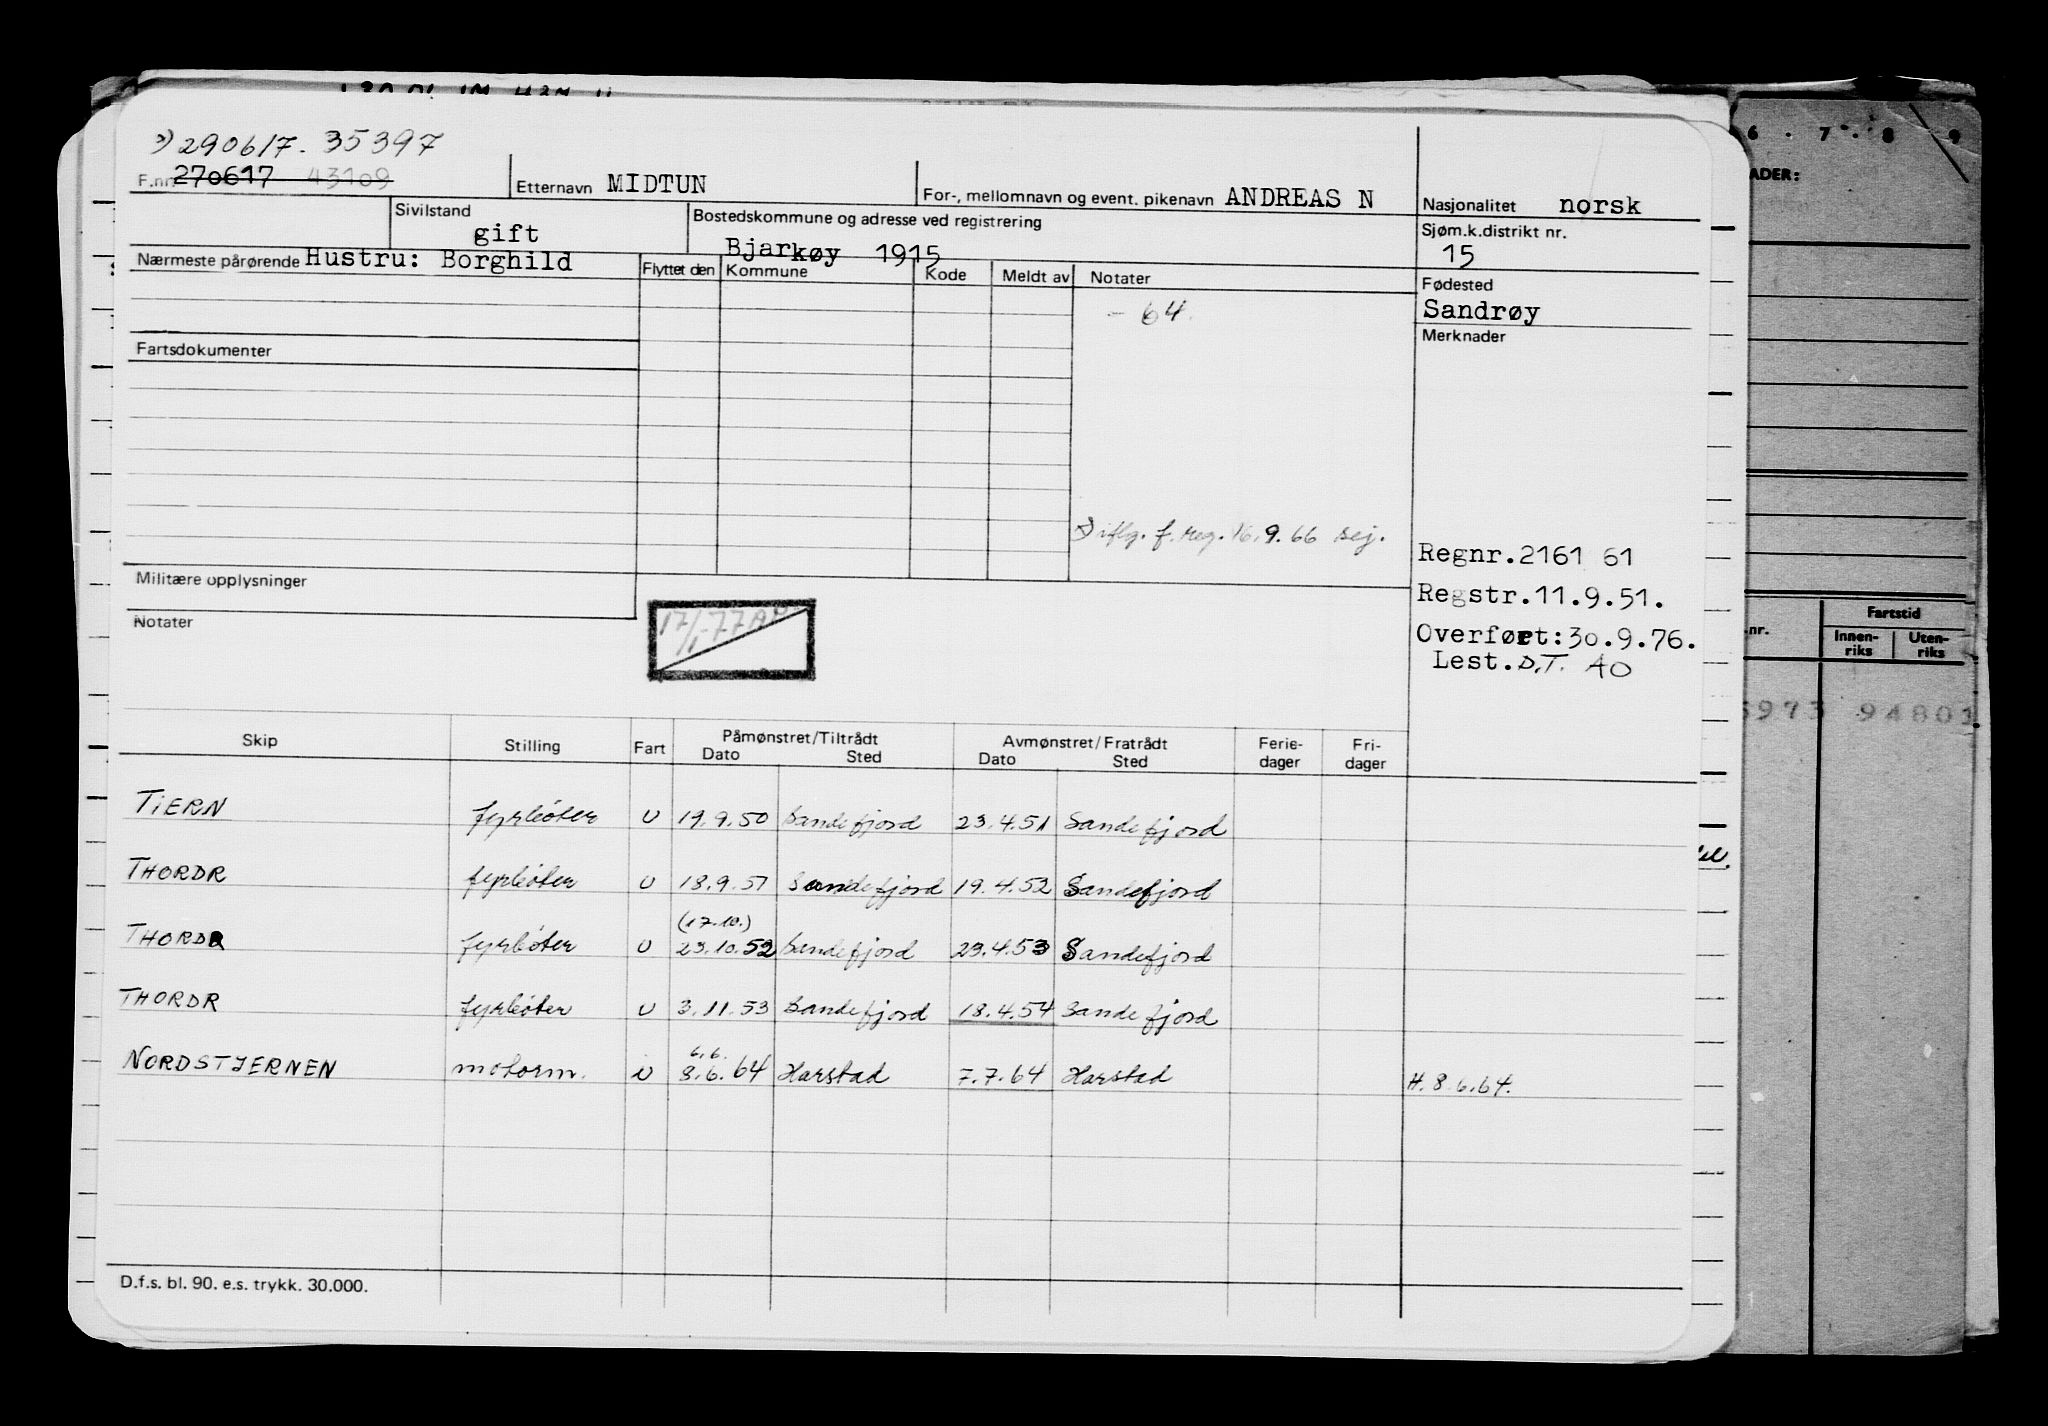 290617. 35397
F.nr. 270617 43109
Etternavn MIDTUN
For-, mellomnavn og event. pikenavn ANDREAS N
Nasjonalitet norsk
Sivilstand gift
Bostedskommune og adresse ved registrering
Bjarkøy 1915
Sjøm.k.distrikt nr.
15
Nærmeste pårørende Hustru: Borghild
Flyttet den Kommune Kode Meldt av Notater
Fødested
Sandrøy
- 64.
Merknader
Fartsdokumenter
iflg. f. reg. 16.9.66 sej.
Regnr.2161 61
Militære opplysninger
Regstr.11.9.51.
Notater
17/1-77
Overført:30.9.76.
Lest. D.T. AO
Skip Stilling Fart Påmønstret/Tiltrådt Avmønstret/Fratrådt Ferie- Fri-
Dato Sted Dato Sted dager dager
TIERN fyrbøter U 19.9.50 Sandefjord 23.4.51 Sandefjord
THORDR fyrbøter U 18.9.51 Sandefjord 19.4.52 Sandefjord
(17.10.)
THORDR fyrbøter U 23.10.52 Sandefjord 23.4.53 Sandefjord
THORDR fyrbøter U 3.11.53 Sandefjord 18.4.54 Sandefjord
6.6.
NORDSTJERNEN motorm. U 8.6.64 Harstad 7.7.64 Harstad H. 8.6.64.
D.f.s. bl. 90. e.s. trykk. 30.000.
6 . 7 . 8 9
ADER:
nr.
Fartstid
Innen-
riks
Uten-
riks
973 94801